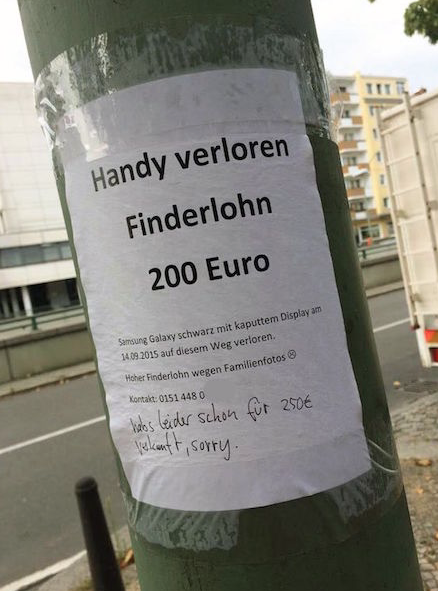 Handy verloren
Finderlohn
200 Euro
Samsung Galaxy schwarz mit kaputtem Display am
14.09.2015 auf diesem Weg verloren.
Hoher Finderlohn wegen Familienfotos ☹
Kontakt: 0151 448 0
habs leider schon für 250€
verkauft, sorry.